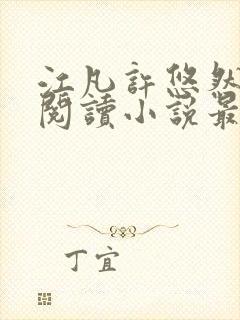 江凡許悠然
閱讀小說最
丁宜